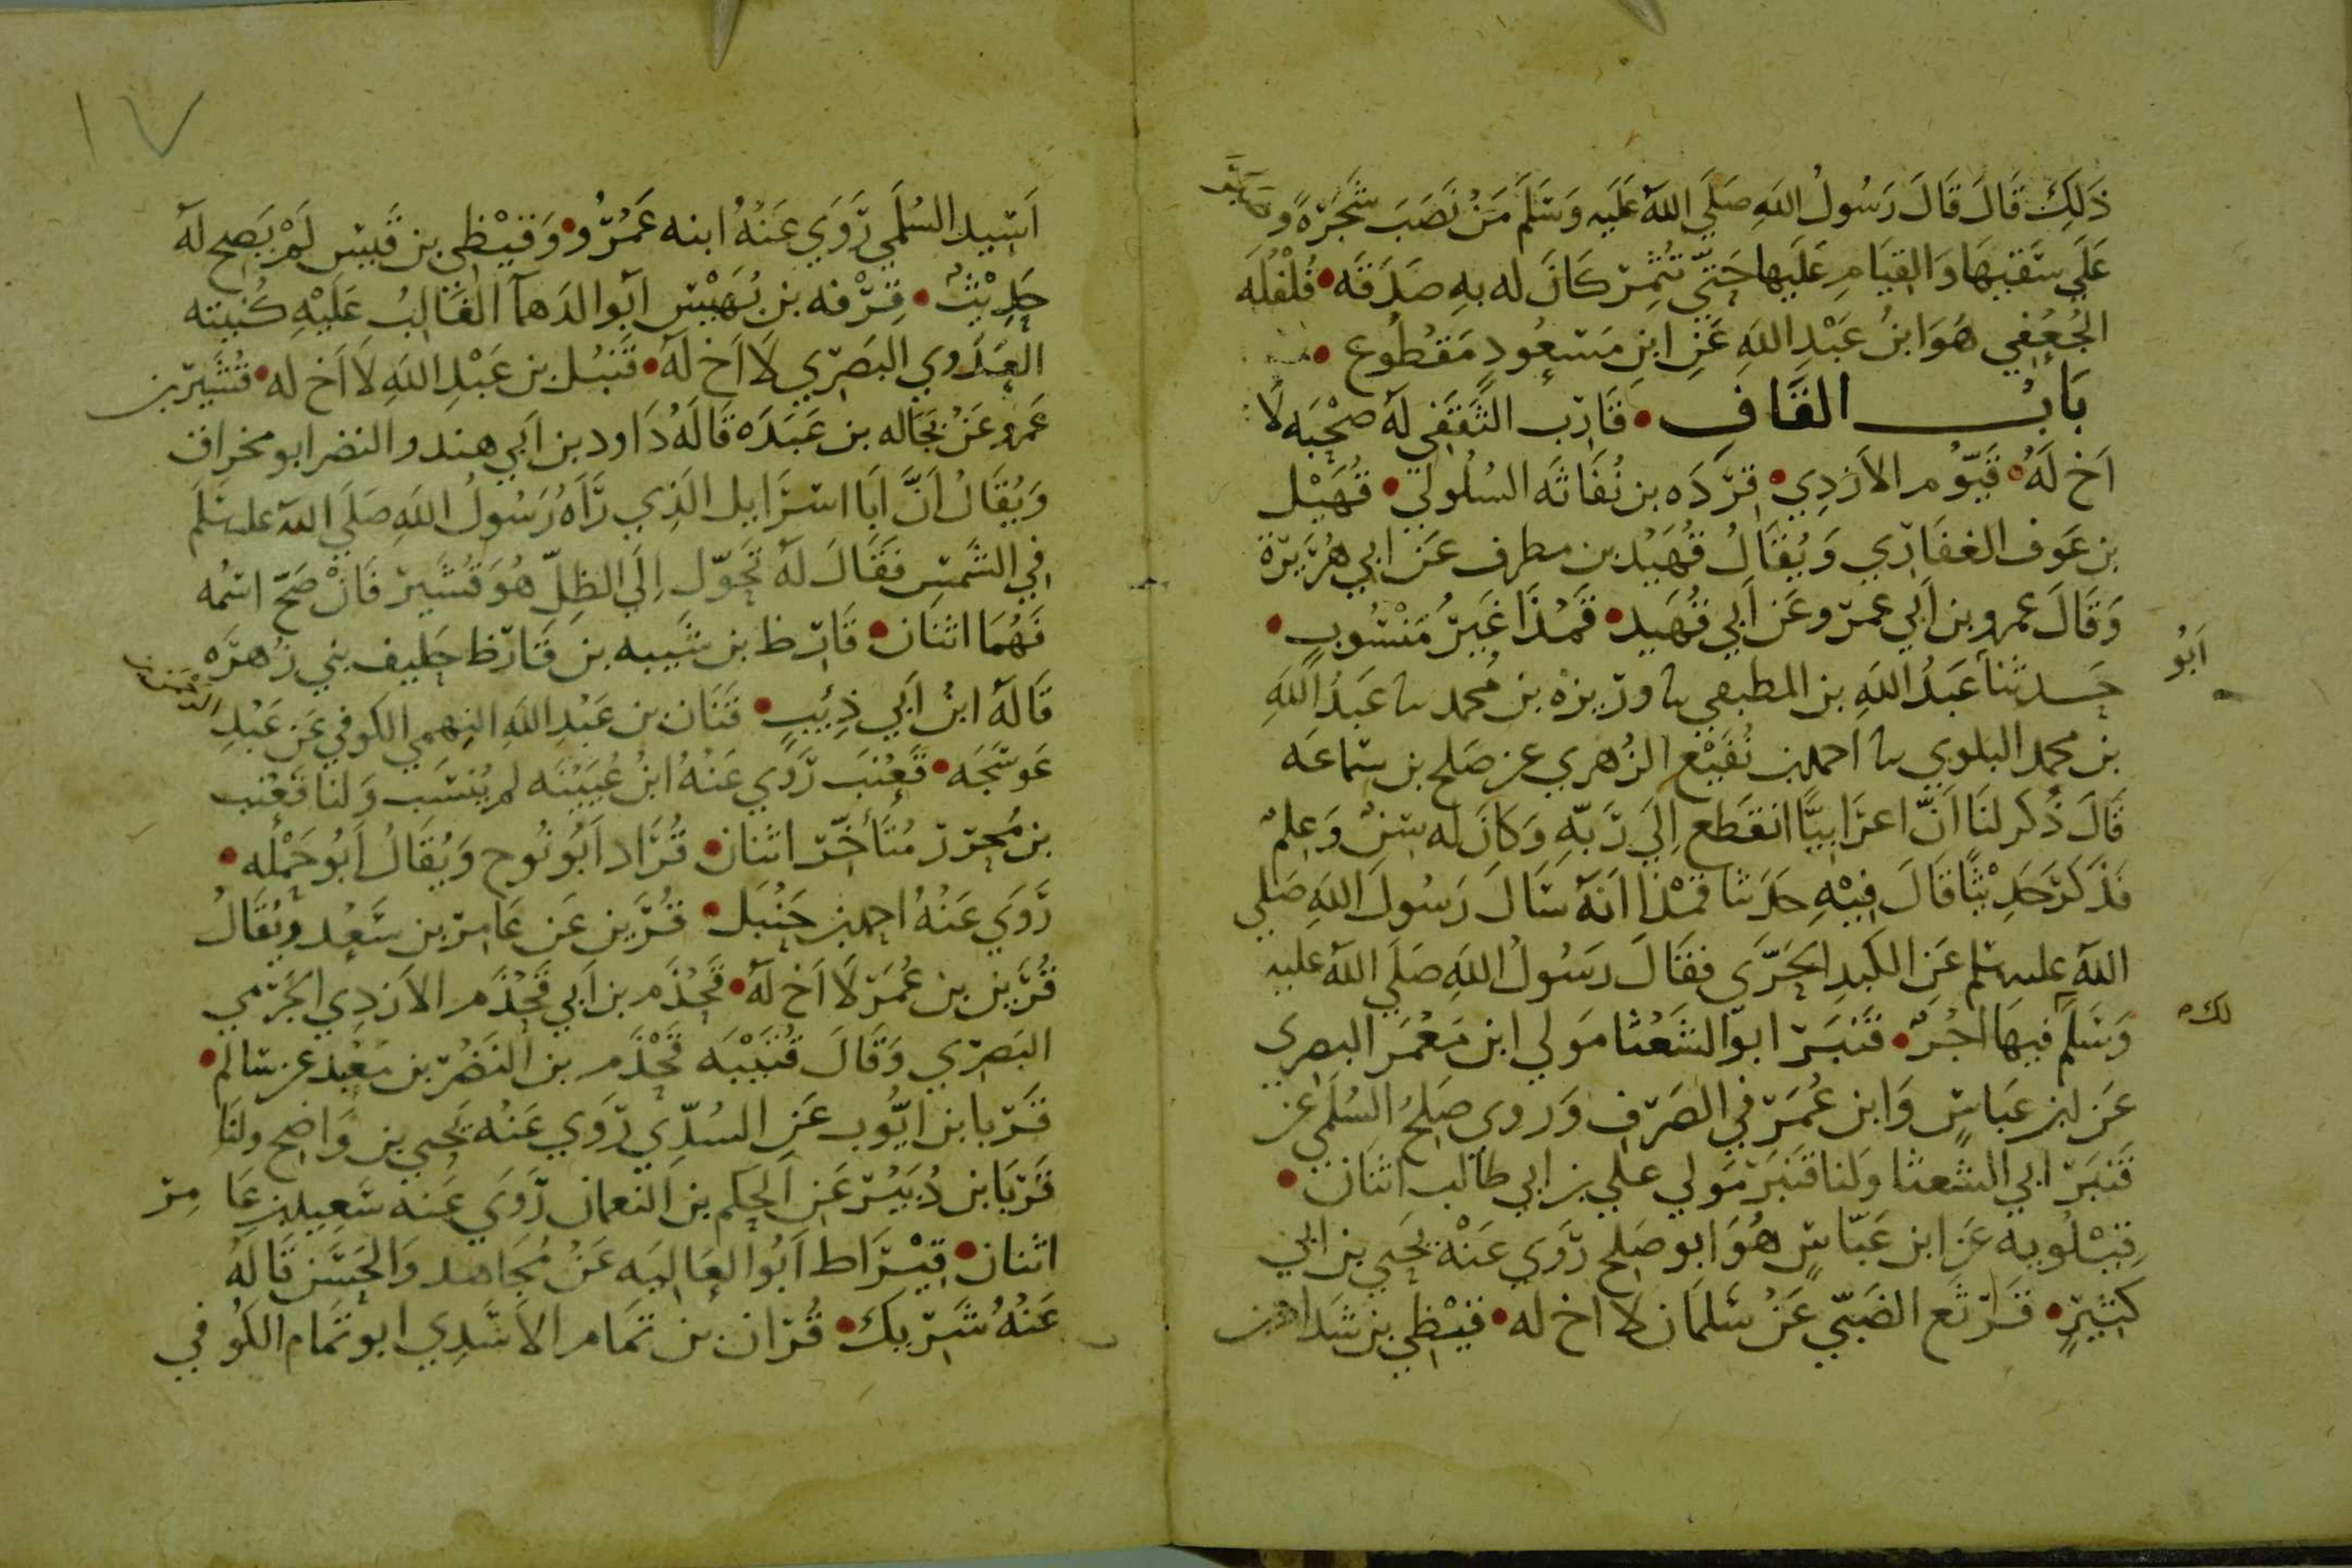 ذَلِكَ قَالَ قَالَ رَسُولُ اللهِ صَلَى اللهُ عَلَيه وَسَلَّمَ مَنْ نَصَبَ شَجَرَةً و
عَلَى سَقيهَا وَالقِيَامِ عَلَيها حَتَّى تُثْمِرَ كَانَ له بهِ صَدَقَه • فُلْفُلَه
الجُعُفِي هُوَ ابنُ عَبْدِ اللهِ عَنِ ابنِ مَسعُودٍ مَقطُوع •
بَابُ القَافِ • قَارب الثَقَفِي لَهُ صُحْبَه لا
اَخ لَهُ • قَيّوم الاَزدِي • قِردَه بن نُفَاثَه السُلُولي • قُهَيْد
بن عَوف الغفَارِي وَيُقَالُ قُهَيْد بن مطرف عَن ابي هُرَيرَة
وَقَالَ عمرو بن اَبي عمرو عَن اَبي قُهَيد • قَمْذَا غَيرُ مَنْسُوبٍ •
اَبُو
حَدثنا عَبدُ اللهِ بن المطبقي نا وريزه بن محمد نا عَبدُ اللهِ
بن محمد البلوي نا احمد بن نُفَيْع الزُهري عن صَلح بن سَماعَه
قَالَ ذُكر لنَا اَنّ اعرَابيًّا انقَطع اِلَى رَبّهِ وَكَانَ له سِنٌ وَعِلمٌ
فذكَرَ حَدِيْثًا قَالَ فِيْهِ حدَثنا قمْذا اَنهُ سَال رَسُولَ اللهِ صَلى
اللهُ عليه سلم عَن الكَبدِ الحَرّى فقَالَ رَسُولُ اللهِ صَلَى اللهُ عليه
وَسَلم فيهَا اجْرٌ • قَنبَر ابو الشَعْثا مَولى ابن مَعْمَر البصري
لك
عَن ابن عَباسٍ وَابن عُمَر في الصَرفِ وَروى صَلح السُلَمي عن
قَنبَر ابي الشعثا وَلنا قَنبَر مَولى على بن ابي طالب اثنَان •
قِيْلُويه عَن ابن عَبّاسٍ هُوَ ابو صَلح رَوَى عَنْهُ يَحيى بن ابي
كَثيرٍ • قَرثَع الضَبّي عَنْ سَلمَان لا اخ له • قَيْظِي بن شَداد بن
١٧
اَسِيد السُلَمي رَوَى عَنْهُ ابنه عَمْرُو • وَقَيْظِي بن قَيس لَمْ يَصح لَهُ
حَدِيْثٌ • قِرْفه بن بُهَيْس ابو الدَهما الغَالِبُ عَلَيْهِ كُنيته
العَدَوي البَصرِي لَا اَخ لَهُ • قَنبُل بن عَبْدِ اللهِ لَا اَخ له • قُشَير بن
عَمرو عَنْ بَجَاله بن عَبَدَه قَالَهُ دَاود بن اَبي هِند والنضر ابو مخراق
وَيُقَالُ اَنَّ اَبَا اسرَاييل الَذِي رَآهُ رَسُولُ اللهِ صَلَى اللهُ عليه سلم
في الشَمس فَقَالَ لَهُ تَحَوّل اِلَى الظِلِّ هُوَ قُشَير فَانْ صَحّ اسمُه
فَهُمَا اثنَان • قَارظ بن شَيبه بن قَارظ حَليف بني زُهرَه
قَالهُ ابنُ اَبي ذِئبٍ • قنَان بن عَبْدِ اللهِ النِهمي الكوفي عَن عَبْدِ الرحمن بن
عَوسَجَه • قَعْنَب رَوَى عَنْهُ ابنُ عُيَيْنَه لم يُنسَب وَلنا قَعْنب
بن مُحرر مُتَأخّر اثنان • قُرَاد اَبُو نُوح وَيُقَالُ اَبُو حَمْلَه •
رَوَى عَنْهُ احمد بن حَنْبَل • قُرَين عَن عَامر بن سَعْد ويُقَالُ
قُرَين بن عُمَر لَا اَخ لَهُ • قَحْذَم بن اَبي قَحْذَم الاَزدِي الجَرمي
البَصرِي وَقَالَ قُتَيْبَه قَحْذَم بن النَضْر بن مَعْبد عن سَالم •
قَريا بن ايّوب عَن السُدّي رَوَى عَنْه يَحيى بن وَاضِح ولنَا
قَريَا بن دُبَير عَن الحكم بن النعمان رَوَى عَنه سَعيد بن عَا مر
اثنان • قيْرَاط اَبُو العَاليَه عَنْ مُجَاهد وَالحَسَن قَالهُ
عَنْهُ شَريكَ • قُرَان بن تَمَام الاَسَدِي ابو تَمَام الكُوفي